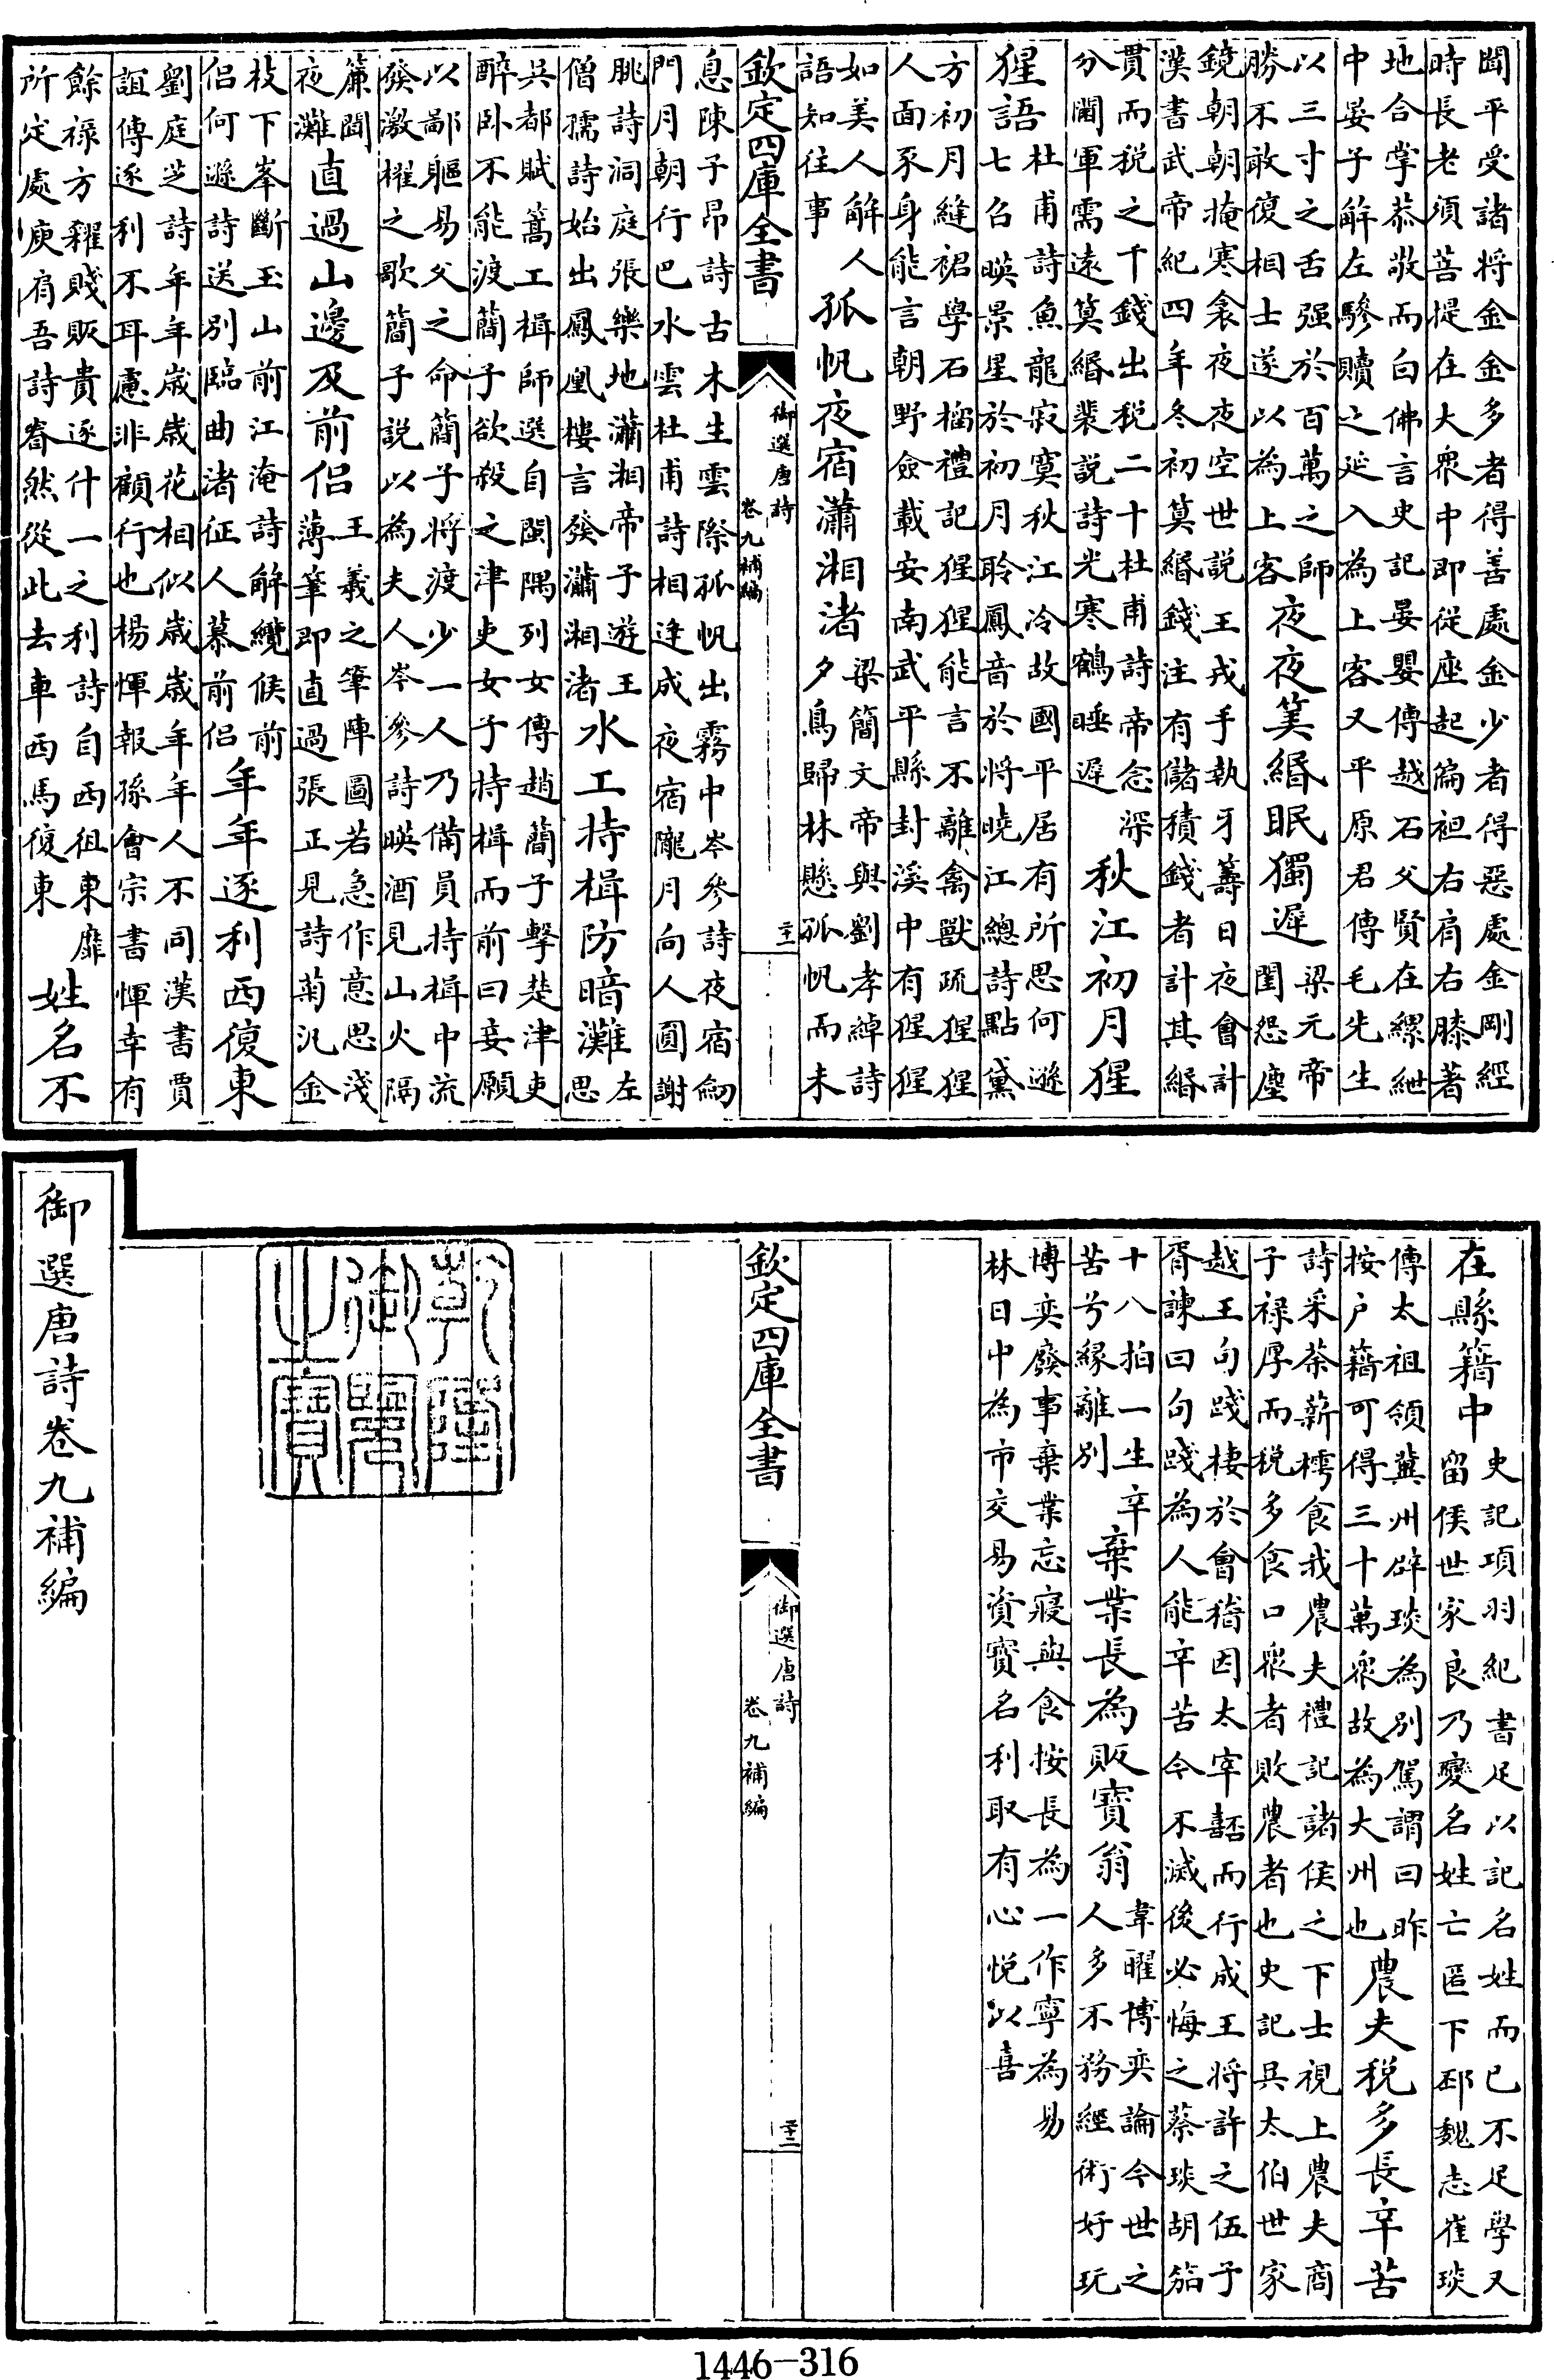 聞平受諸将金金多者得善處金少者得惡處金剛經
時長老須菩提在大衆中即從座起偏袒右肩右膝著
地合掌恭敬而白佛言史記晏嬰傳越石父賢在縲紲
中晏子解左驂贖之延入為上客又平原君傳毛先生
以三寸之舌强於百萬之師
勝不敢復相士遂以為上客
夜夜筭緡眠獨遲
梁元帝
閨怨塵
鏡朝朝掩寒衾夜夜空世説王戎手執牙籌日夜會計
漢書武帝紀四年冬初筭緡錢注有儲積錢者計其緡
貫而税之千錢出税二十杜甫詩帝念深
分閫軍需遠筭緡裴説詩光寒鶴睡遲
秋江初月猩
猩語
杜甫詩魚龍寂寞秋江冷故國平居有所思何遜
七召暎景星於初月聆鳳音於将曉江總詩點黛
方初月縫裙學石榴禮記猩猩能言不離禽獸疏猩猩
人面豕身能言朝野僉載安南武平縣封溪中有猩猩
如美人解人
語知往事
孤帆夜宿瀟湘渚
梁簡文帝與劉孝綽詩
夕鳥歸林懸孤帆而未
欽定四庫全書
御選唐詩
卷九補編
二十一
息陳子昂詩古木生雲際孤帆出霧中岑參詩夜宿劒
門月朝行巴水雲杜甫詩相逢成夜宿隴月向人圓謝
朓詩洞庭張樂地瀟湘帝子遊王
僧孺詩始出鳳凰樓言發瀟湘渚
水工持楫防暗灘
左
思
吳都賦篙工楫師選自閩隅列女傳趙簡子擊楚津吏
醉卧不能渡簡子欲殺之津吏女子持楫而前曰妾願
以鄙軀易父之命簡子将渡少一人乃備員持楫中流
發激櫂之歌簡子説以為夫人岑參詩暎酒見山火隔
簾聞
夜灘
直過山邊及前侣
王羲之筆陣圖若急作意思淺
薄筆即直過張正見詩菊汎金
枝下峯斷玉山前江淹詩解纜候前
侣何遜詩送別臨曲渚征人慕前侣
年年逐利西復東
劉庭芝詩年年歲歲花相似歲歲年年人不同漢書賈
誼傳逐利不耳慮非顧行也楊惲報孫會宗書惲幸有
餘禄方糴賤販貴逐什一之利詩自西徂東靡
所定處庾肩吾詩然從此去車西馬復東
姓名不
在縣籍中
史記項羽紀書足以記名姓而已不足學又
留侯世家良乃變名姓亡匿下邳魏志崔琰
傳太祖領冀州辟琰為別駕謂曰昨
按户籍可得三十萬衆故為大州也
農夫税多長辛苦
詩采荼薪樗食我農夫禮記諸侯之下士視上農夫商
子禄厚而税多食口衆者敗農者也史記吳太伯世家
越王句踐棲於會稽因太宰嚭而行成王将許之伍子
胥諫曰句踐為人能辛苦今不滅後必悔之蔡琰胡笳
十八拍一生辛
苦兮緣離別
棄業長為販寶翁
韋曜博奕論今世之
人多不務經術好玩
博奕廢事棄業忘寢與食按長為一作寧為易
林日中為市交易資寶名利取有心悦以喜
欽定四庫全書
御選唐詩
卷九補編
二十二
乾隆御覽之寶
御選唐詩卷九補編
1446-316